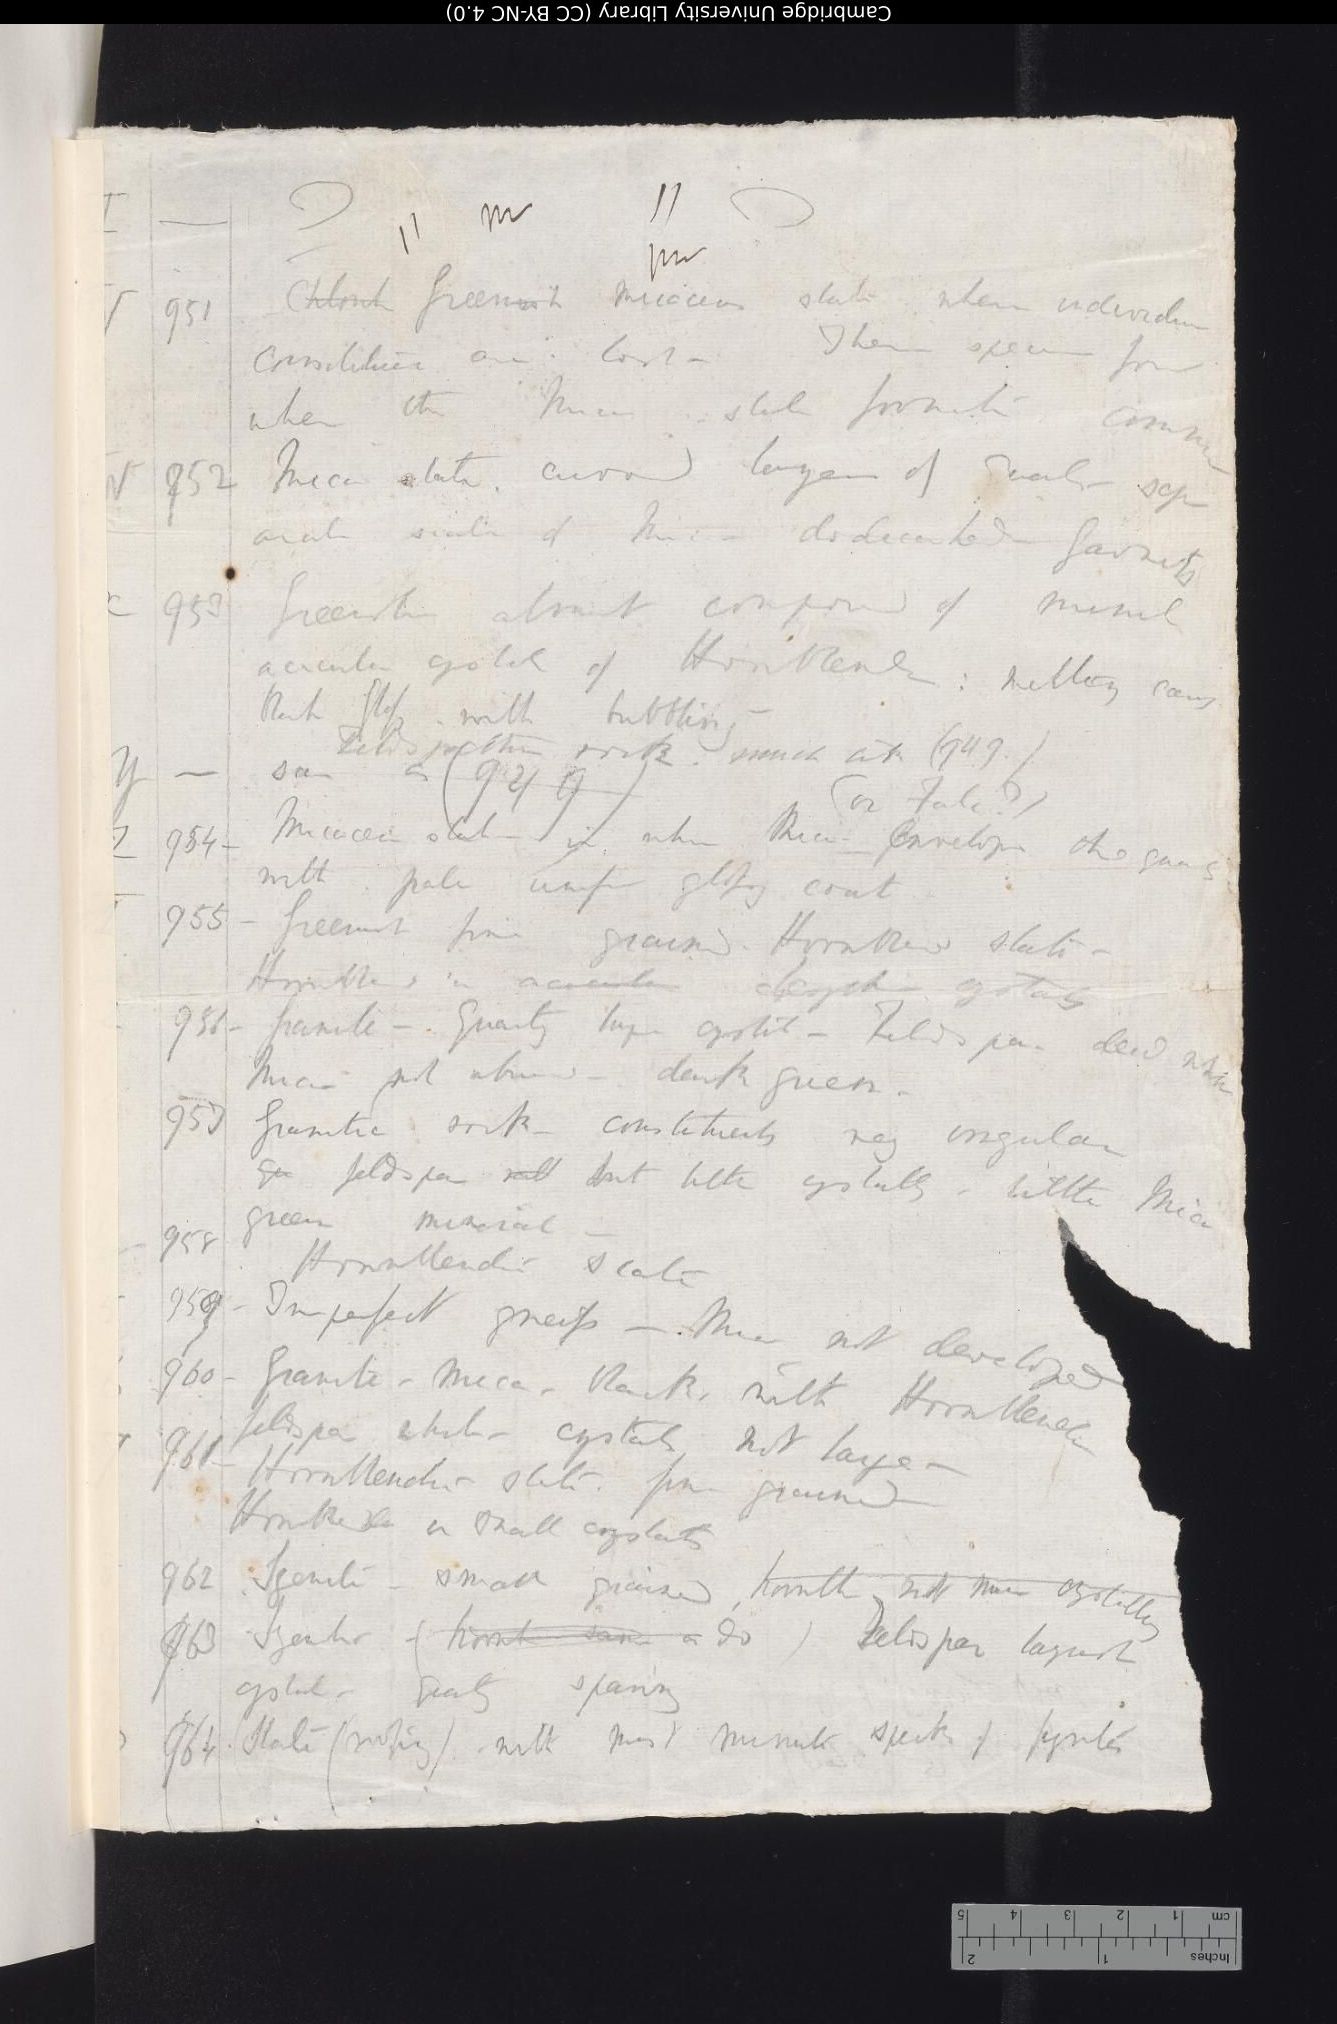 Cambridge University Library (CC BY-NC 4.0)
951 Chlorit Greenish micaceous slate where individu
constituen are lost - These specim from
when the Mica slate formati comm
952 Mica slate. curved layers of Quartz sep
arate scales of Mica dodecahed Garnets
953 Greenish almost composed of minute
acicular crystals of Hornblende : melting easy
Black glass with bubbling
Feldspathic rock much as (949.)
— same as (949)
(or Talc?)
954 - Micaceous slate in which Mica envelopes the quartz
with pale uniform glossy coat
955 - Greenish fine grained Hornblend slate -
Hornblend in acicular crystals
956 - Granite - Quartz large crystals - Feldspar dead white
Mica not abund - dark green -
957 Granitic rock - constituents very irregular
feldspar but little crystally - little Mica
green mineral -
958 Hornblendic slate
959 - Imperfect gneiss - Mica not developed
960 - Granite - Mica - Black, with Hornblende
feldspar white crystals not large -
961 - Hornblendic slate. fine grained
Hornblende in small crystals
962 Syenite - small grained, hornbl not crystally
963 Syenite - (hornbl same as do) Feldspar largest
crystals - Quartz sparing
964 Slate (roofing) with most minute specks of pyrites
cm 1 2 3 4 5
Inches 1 2